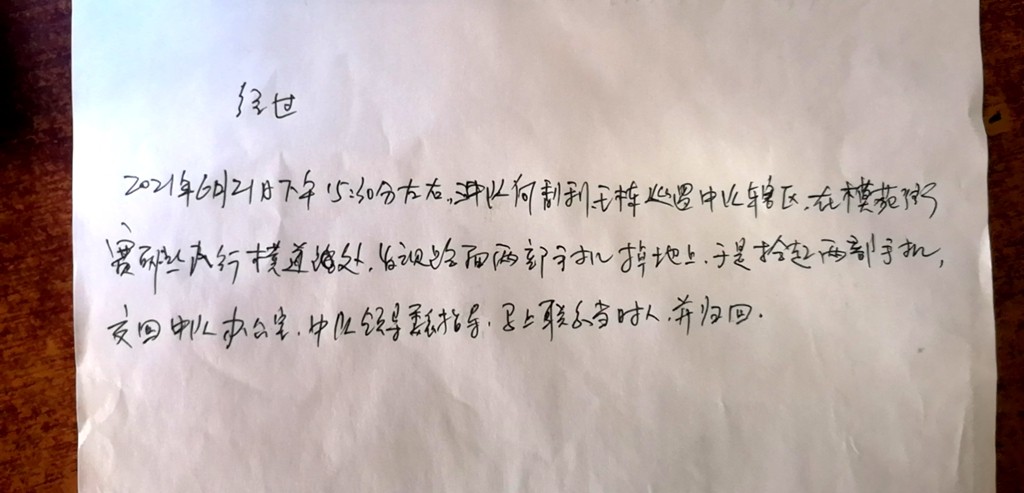 经过
2021年6月21日下午15:30分左右,中队何 巡逻中队辖区,在模范街
人行横道 处,发现路面两部手机掉地上,于是拾起两部手机,
交回中队办公室,中队领导 指导,马上联系当时人,并归回.